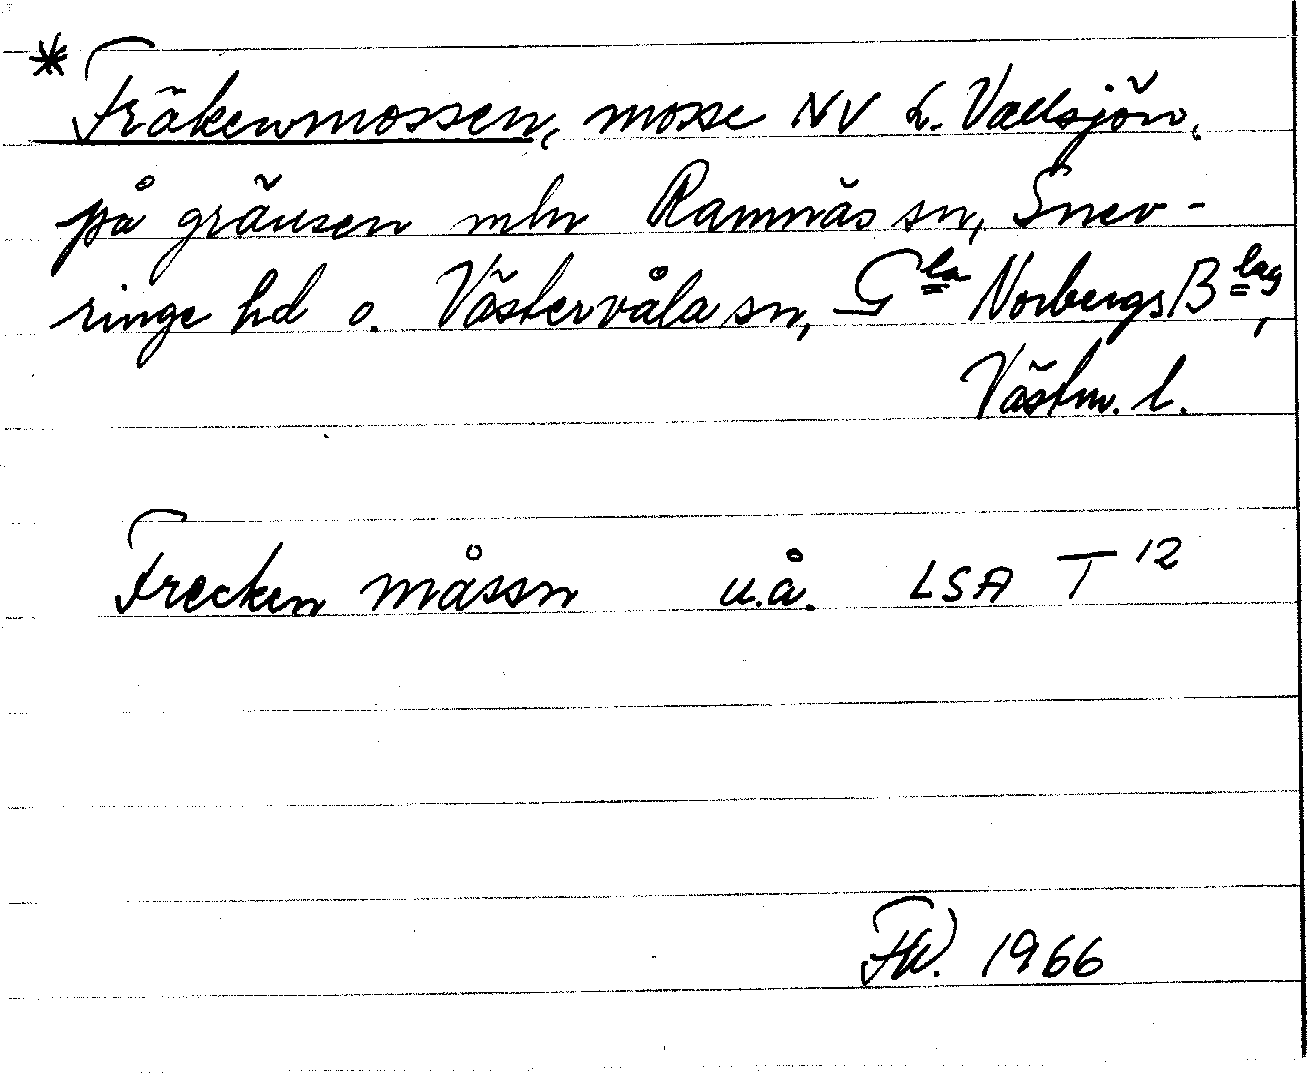 * Fräkenmossen, mosse NV L. Vallsjön,
på gränsen mln Ramnäs sn, Snev-
ringe hd o. Västervåla sn, Gla Norbergs Blag,
Västm. l.
Frecken måssn u.å. LSA T 12
FW. 1966